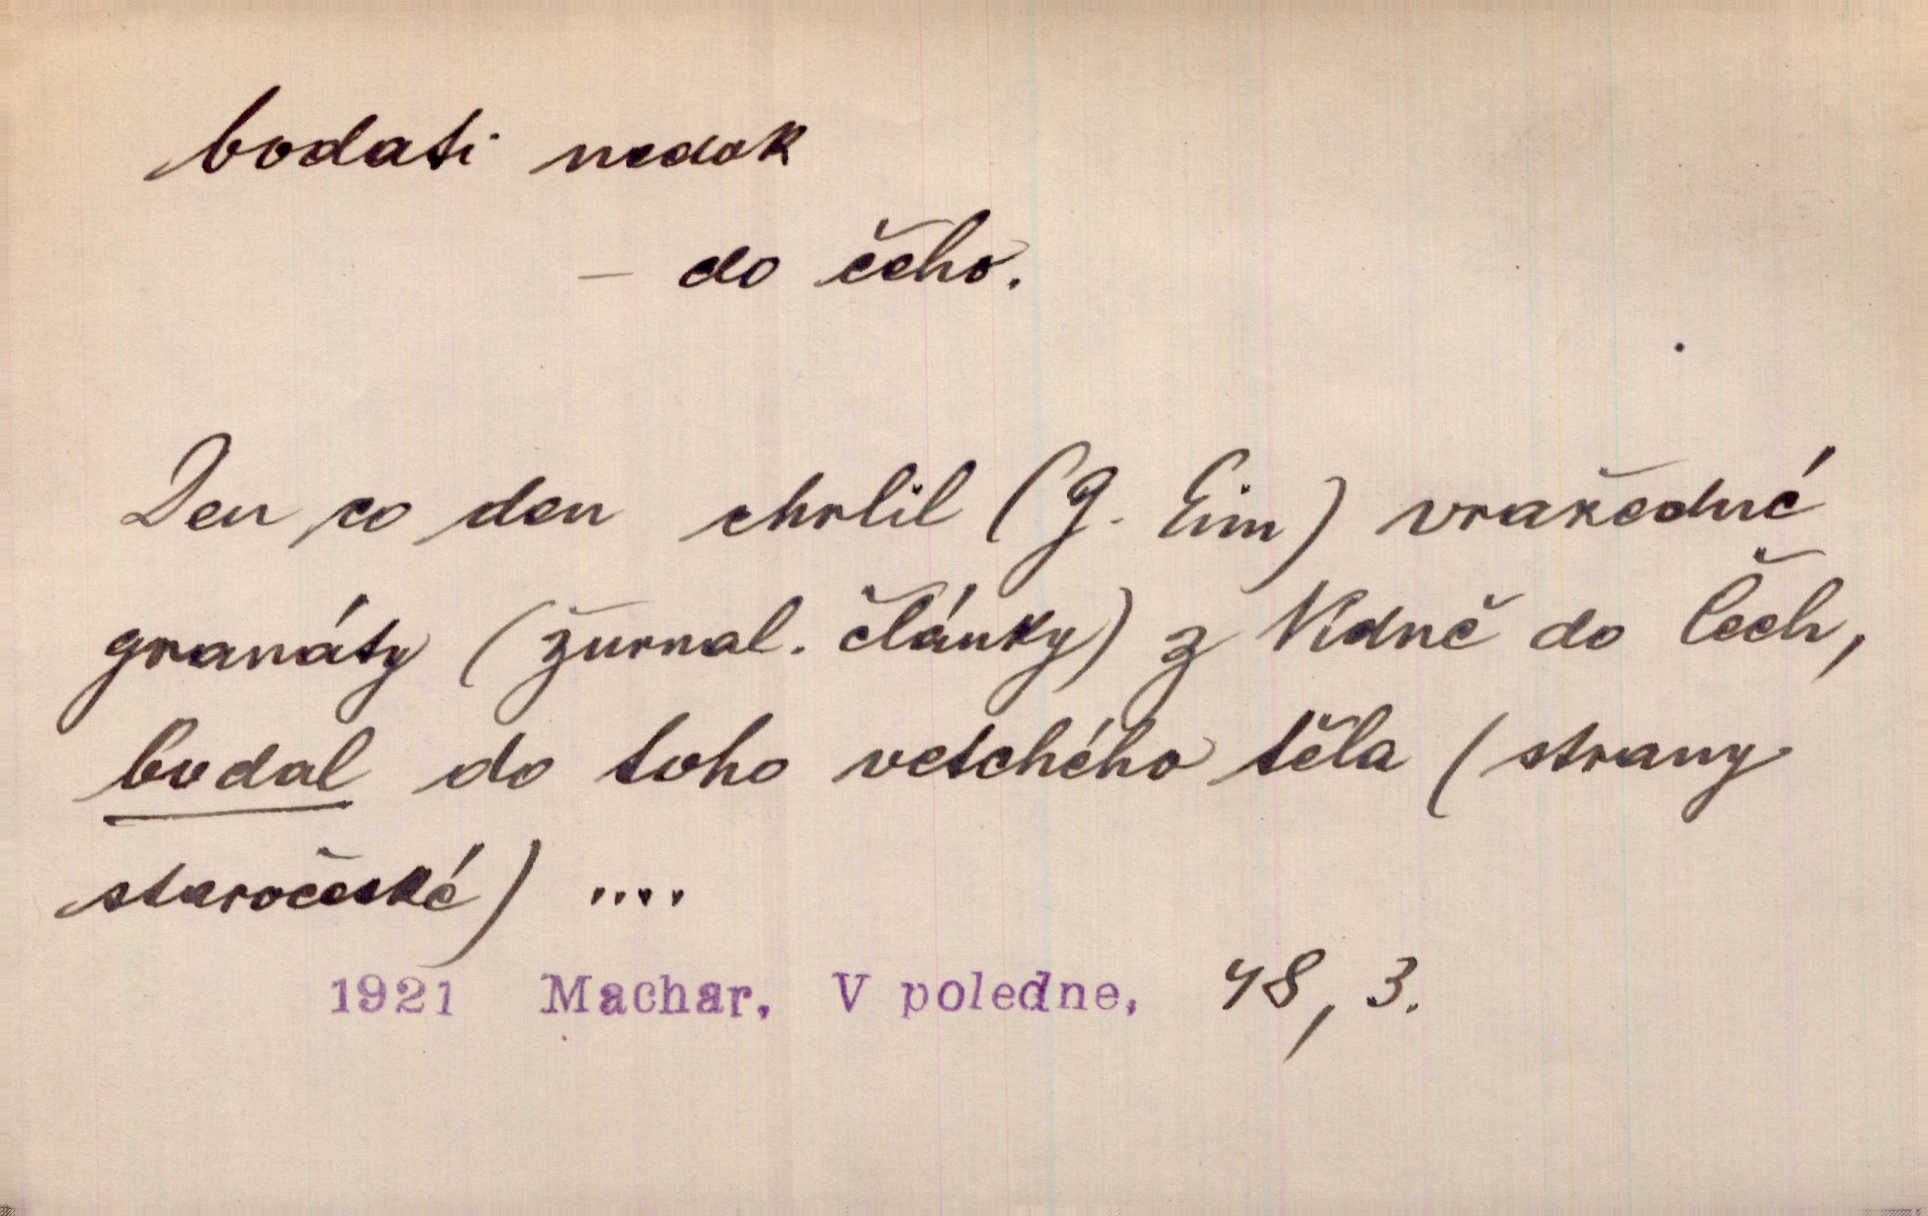 bodati nedok
– do čeho.
Den co den chrlil (G. Eim) vražedné
granáty (žurnal. články) z Vídně do Čech,
bodal do toho vetchého těla (strany
staročeské) ....
1921 Machar, V poledne, 48, 3.